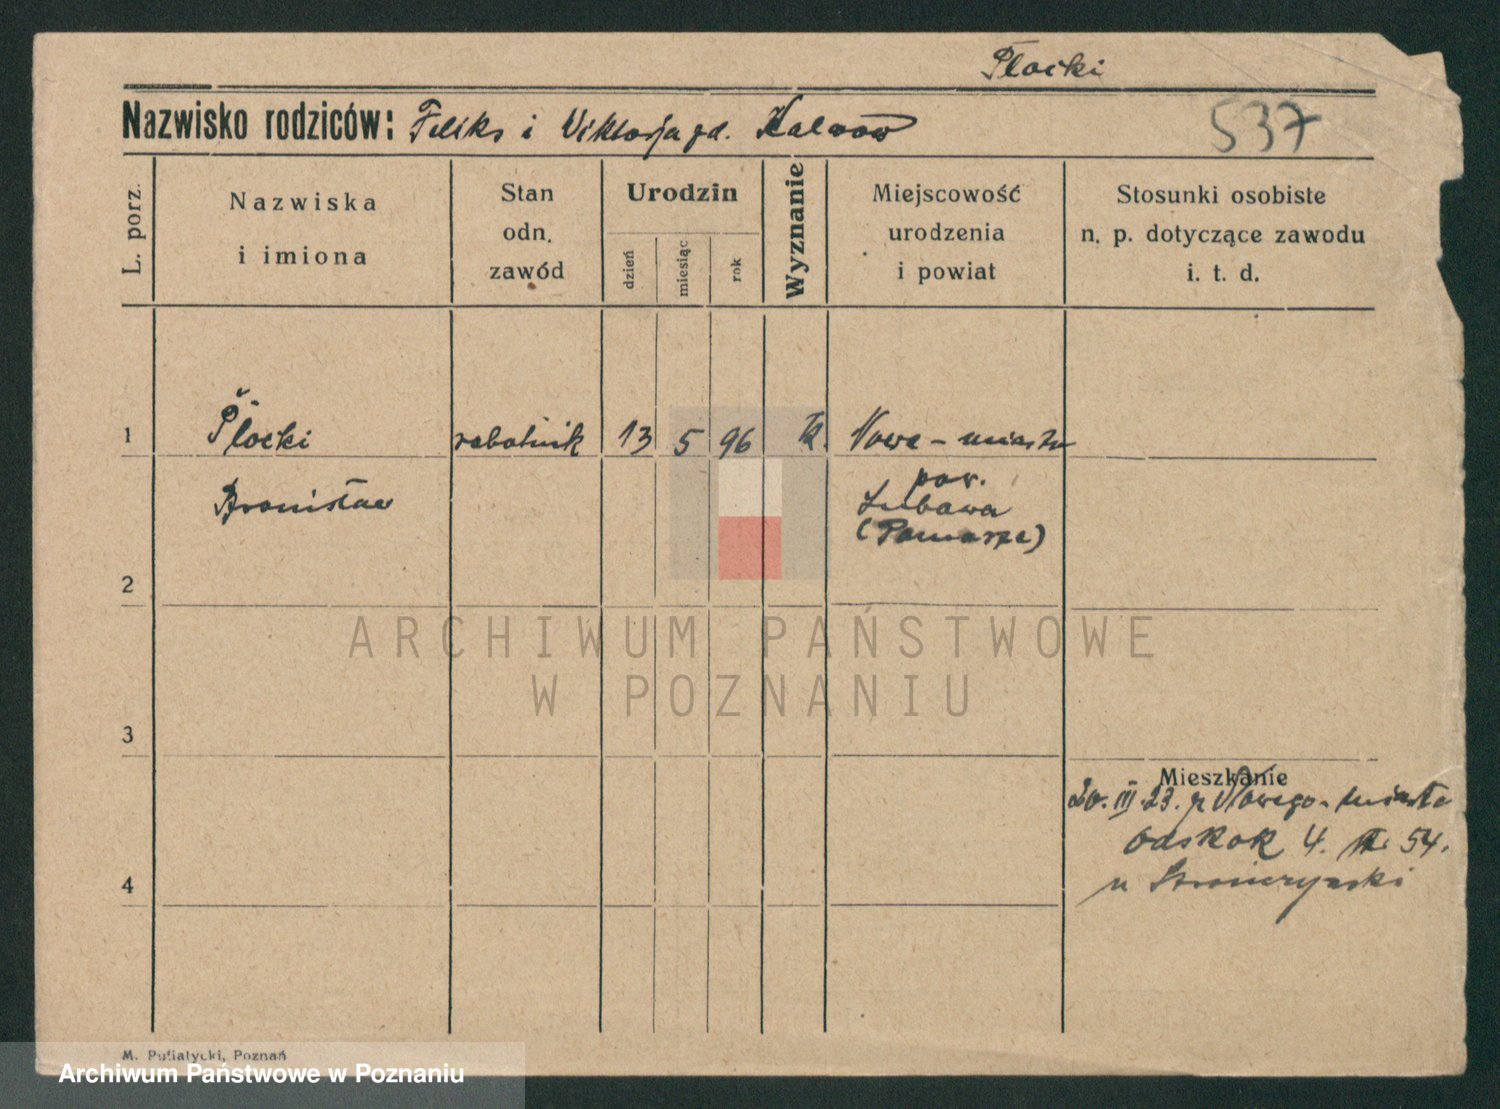 Płocki
Nazwisko rodziców: Feliks i Wiktorja zd. Kalwow
537
L. porz.
Nazwiska
i imiona
Stan
odn.
zawód
Urodzin
dzień
miesiąc
rok
Wyznanie
Miejscowość
urodzenia
i powiat
Stosunki osobiste
n. p. dotyczące zawodu
i. t. d.
1 Płocki robotnik 13 5 96 rk. Nowe-miasto
Bronisław pow.
Lubawa
(Pomorze)
2
ARCHIWUM PAŃSTWOWE
W POZNANIU
3
Mieszkanie
20. III. 23. z Nowego-miasta
4. 54.
4
u
M. Putiatycki, Poznań
Archiwum Państwowe w Poznaniu